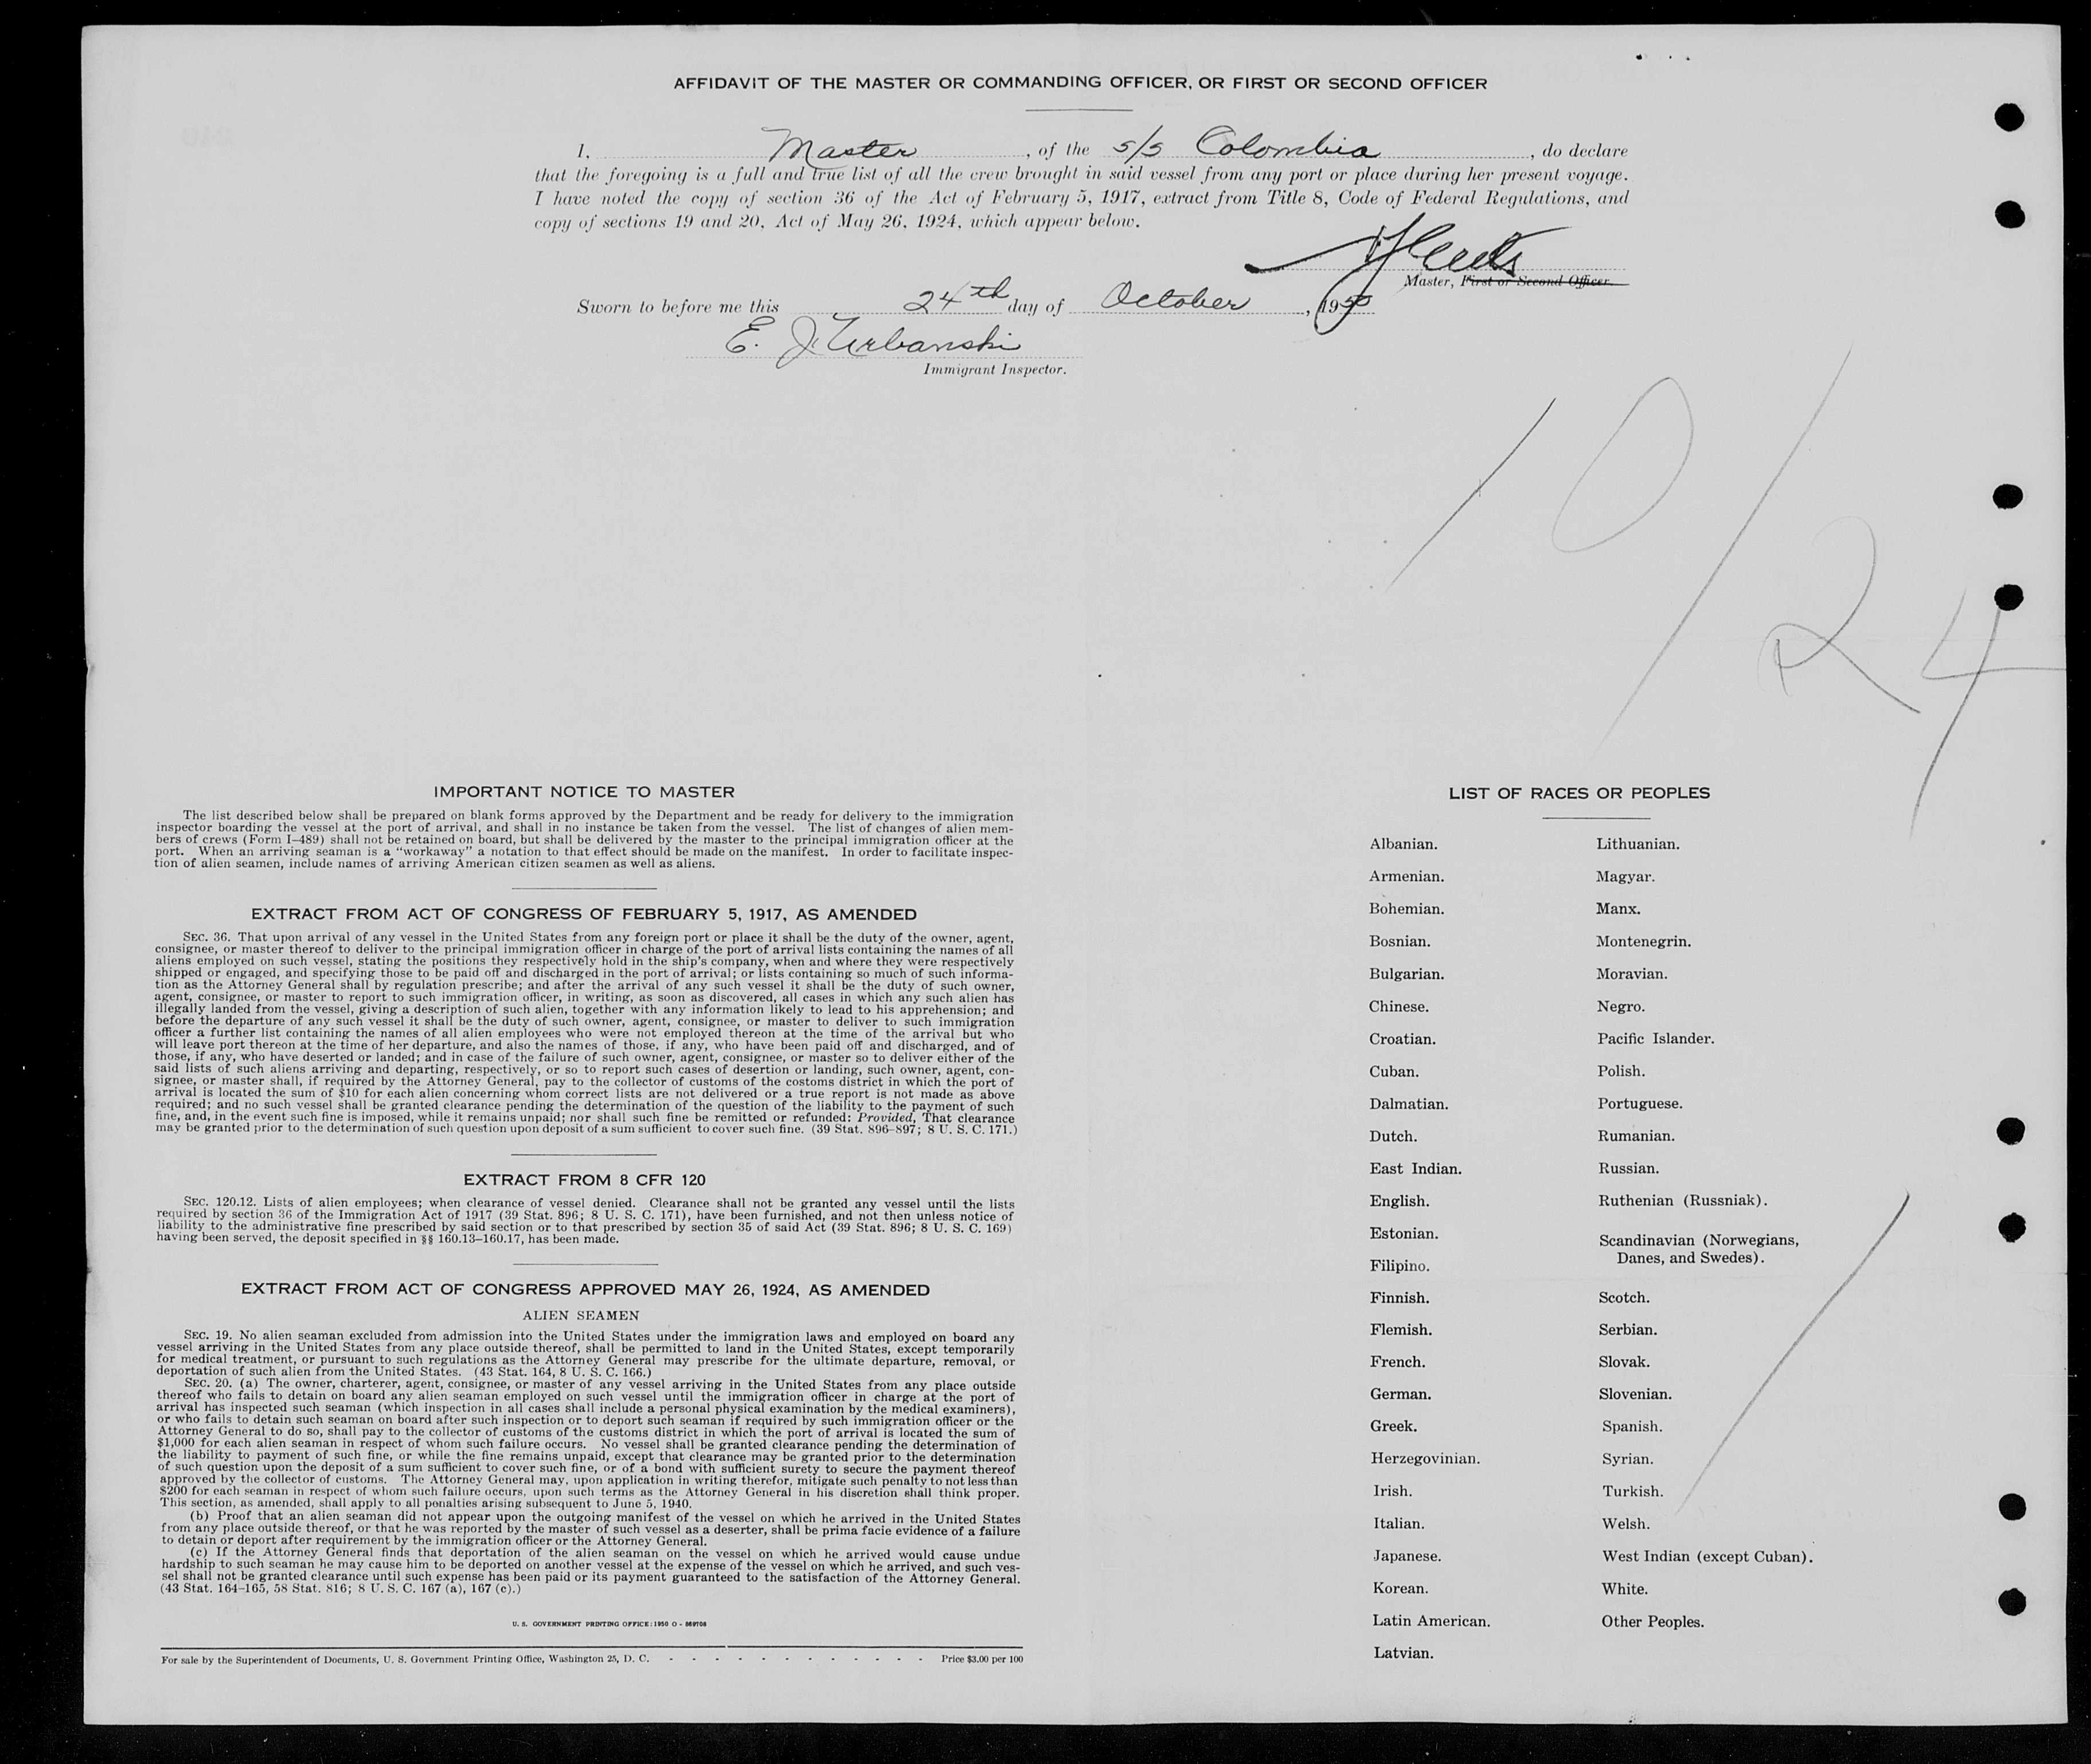 AFFIDAVIT OF THE MASTER OR COMMANDING OFFICER, OR FIRST OR SECOND OFFICER
I, Master, of the s/s Colombia, do declare
that the foregoing is a full and true list of all the crew brought in said vessel from any port or place during her present voyage.
I have noted the copy of section 36 of the Act of February 5, 1917, extract from Title 8, Code of Federal Regulations, and
copy of sections 19 and 20, Act of May 26, 1924, which appear below.
Master, First or Second Officer.
Sworn to before me this 24th day of October, 1950
E. J. Urbanski
Immigrant Inspector.
10/24
IMPORTANT NOTICE TO MASTER
The list described below shall be prepared on blank forms approved by the Department and be ready for delivery to the immigration
inspector boarding the vessel at the port of arrival, and shall in no instance be taken from the vessel. The list of changes of alien mem-
bers of crews (Form I-489) shall not be retained on board, but shall be delivered by the master to the principal immigration officer at the
port. When an arriving seaman is a "workaway" a notation to that effect should be made on the manifest. In order to facilitate inspec-
tion of alien seamen, include names of arriving American citizen seamen as well as aliens.
EXTRACT FROM ACT OF CONGRESS OF FEBRUARY 5, 1917, AS AMENDED
SEC. 36. That upon arrival of any vessel in the United States from any foreign port or place it shall be the duty of the owner, agent,
consignee, or master thereof to deliver to the principal immigration officer in charge of the port of arrival lists containing the names of all
aliens employed on such vessel, stating the positions they respectively hold in the ship's company, when and where they were respectively
shipped or engaged, and specifying those to be paid off and discharged in the port of arrival; or lists containing so much of such informa-
tion as the Attorney General shall by regulation prescribe; and after the arrival of any such vessel it shall be the duty of such owner,
agent, consignee, or master to report to such immigration officer, in writing, as soon as discovered, all cases in which any such alien has
illegally landed from the vessel, giving a description of such alien, together with any information likely to lead to his apprehension; and
before the departure of any such vessel it shall be the duty of such owner, agent, consignee, or master to deliver to such immigration
officer a further list containing the names of all alien employees who were not employed thereon at the time of the arrival but who
will leave port thereon at the time of her departure, and also the names of those, if any, who have been paid off and discharged, and of
those, if any, who have deserted or landed; and in case of the failure of such owner, agent, consignee, or master so to deliver either of the
said lists of such aliens arriving and departing, respectively, or so to report such cases of desertion or landing, such owner, agent, con-
signee, or master shall, if required by the Attorney General, pay to the collector of customs of the costoms district in which the port of
arrival is located the sum of $10 for each alien concerning whom correct lists are not delivered or a true report is not made as above
required; and no such vessel shall be granted clearance pending the determination of the question of the liability to the payment of such
fine, and, in the event such fine is imposed, while it remains unpaid; nor shall such fine be remitted or refunded: Provided, That clearance
may be granted prior to the determination of such question upon deposit of a sum sufficient to cover such fine. (39 Stat. 896-897; 8 U. S. C. 171.)
EXTRACT FROM 8 CFR 120
SEC. 120.12. Lists of alien employees; when clearance of vessel denied. Clearance shall not be granted any vessel until the lists
required by section 36 of the Immigration Act of 1917 (39 Stat. 896; 8 U. S. C. 171), have been furnished, and not then unless notice of
liability to the administrative fine prescribed by said section or to that prescribed by section 35 of said Act (39 Stat. 896; 8 U. S. C. 169)
having been served, the deposit specified in §§ 160.13-160.17, has been made.
EXTRACT FROM ACT OF CONGRESS APPROVED MAY 26, 1924, AS AMENDED
ALIEN SEAMEN
SEC. 19. No alien seaman excluded from admission into the United States under the immigration laws and employed on board any
vessel arriving in the United States from any place outside thereof, shall be permitted to land in the United States, except temporarily
for medical treatment, or pursuant to such regulations as the Attorney General may prescribe for the ultimate departure, removal, or
deportation of such alien from the United States. (43 Stat. 164, 8 U. S. C. 166.)
SEC. 20. (a) The owner, charterer, agent, consignee, or master of any vessel arriving in the United States from any place outside
thereof who fails to detain on board any alien seaman employed on such vessel until the immigration officer in charge at the port of
arrival has inspected such seaman (which inspection in all cases shall include a personal physical examination by the medical examiners),
or who fails to detain such seaman on board after such inspection or to deport such seaman if required by such immigration officer or the
Attorney General to do so, shall pay to the collector of customs of the customs district in which the port of arrival is located the sum of
$1,000 for each alien seaman in respect of whom such failure occurs. No vessel shall be granted clearance pending the determination of
the liability to payment of such fine, or while the fine remains unpaid, except that clearance may be granted prior to the determination
of such question upon the deposit of a sum sufficient to cover such fine, or of a bond with sufficient surety to secure the payment thereof
approved by the collector of customs. The Attorney General may, upon application in writing therefor, mitigate such penalty to not less than
$200 for each seaman in respect of whom such failure occurs, upon such terms as the Attorney General in his discretion shall think proper.
This section, as amended, shall apply to all penalties arising subsequent to June 5, 1940.
(b) Proof that an alien seaman did not appear upon the outgoing manifest of the vessel on which he arrived in the United States
from any place outside thereof, or that he was reported by the master of such vessel as a deserter, shall be prima facie evidence of a failure
to detain or deport after requirement by the immigration officer or the Attorney General.
(c) If the Attorney General finds that deportation of the alien seaman on the vessel on which he arrived would cause undue
hardship to such seaman he may cause him to be deported on another vessel at the expense of the vessel on which he arrived, and such ves-
sel shall not be granted clearance until such expense has been paid or its payment guaranteed to the satisfaction of the Attorney General.
(43 Stat. 164-165, 58 Stat. 816; 8 U. S. C. 167 (a), 167 (c).)
U. S. GOVERNMENT PRINTING OFFICE: 1950 O - 869708
For sale by the Superintendent of Documents, U. S. Government Printing Office, Washington 25, D. C. - - - - - - - - - - - - - Price $3.00 per 100
LIST OF RACES OR PEOPLES
Albanian.
Armenian.
Bohemian.
Bosnian.
Bulgarian.
Chinese.
Croatian.
Cuban.
Dalmatian.
Dutch.
East Indian.
English.
Estonian.
Filipino.
Finnish.
Flemish.
French.
German.
Greek.
Herzegovinian.
Irish.
Italian.
Japanese.
Korean.
Latin American.
Latvian.
Lithuanian.
Magyar.
Manx.
Montenegrin.
Moravian.
Negro.
Pacific Islander.
Polish.
Portuguese.
Rumanian.
Russian.
Ruthenian (Russniak).
Scandinavian (Norwegians,
Danes, and Swedes).
Scotch.
Serbian.
Slovak.
Slovenian.
Spanish.
Syrian.
Turkish.
Welsh.
West Indian (except Cuban).
White.
Other Peoples.